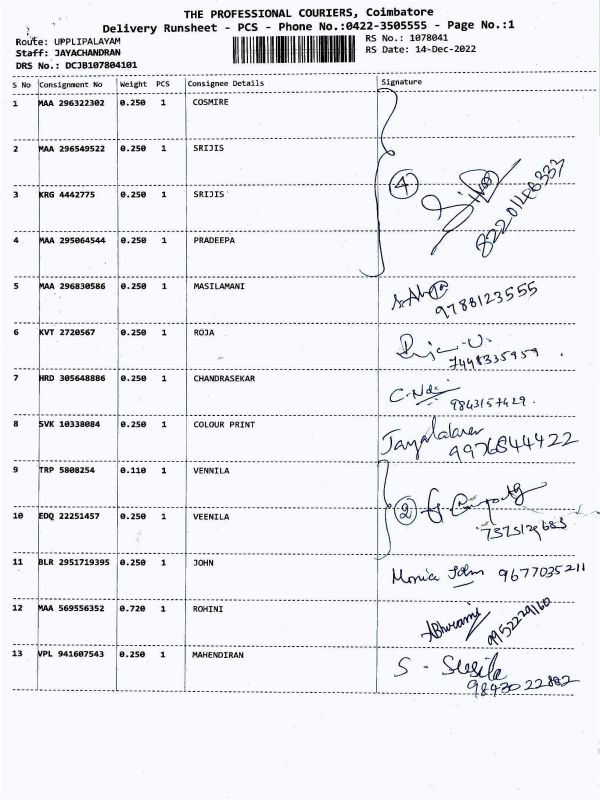 THE PROFESSIONAL COURIERS, Coimbatore
Delivery Runsheet - PCS - Phone No.:0422-3505555 - Page No.:1
Route: UPPLIPALAYAM
RS No.: 1078041
Staff: JAYACHANDRAN
RS Date: 14-Dec-2022
DRS No.: DCJB107804101
S No Consignment No Weight PCS Consignee Details Signature
1 MAA 296322302 0.250 1 COSMIRE
2 MAA 296549522 0.250 1 SRIJIS
4
3 KRG 4442775 0.250 1 SRIJIS
4 MAA 295064544 0.250 1 PRADEEPA
5 MAA 296830586 0.250 1 MASILAMANI
9788123555
6 KVT 2720567 0.250 1 ROJA
7448335959
7 HRD 305648886 0.250 1 CHANDRASEKAR
9843157429.
8 SVK 10338084 0.250 1 COLOUR PRINT
9976844422
9 TRP 5808254 0.110 1 VENNILA
2
10 EDQ 22251457 0.250 1 VEENILA
11 BLR 2951719395 0.250 1 JOHN
Monica John 9677035211
12 MAA 569556352 0.720 1 ROHINI
9952229160
13 VPL 941607543 0.250 1 MAHENDIRAN
S - Susila
9843022882